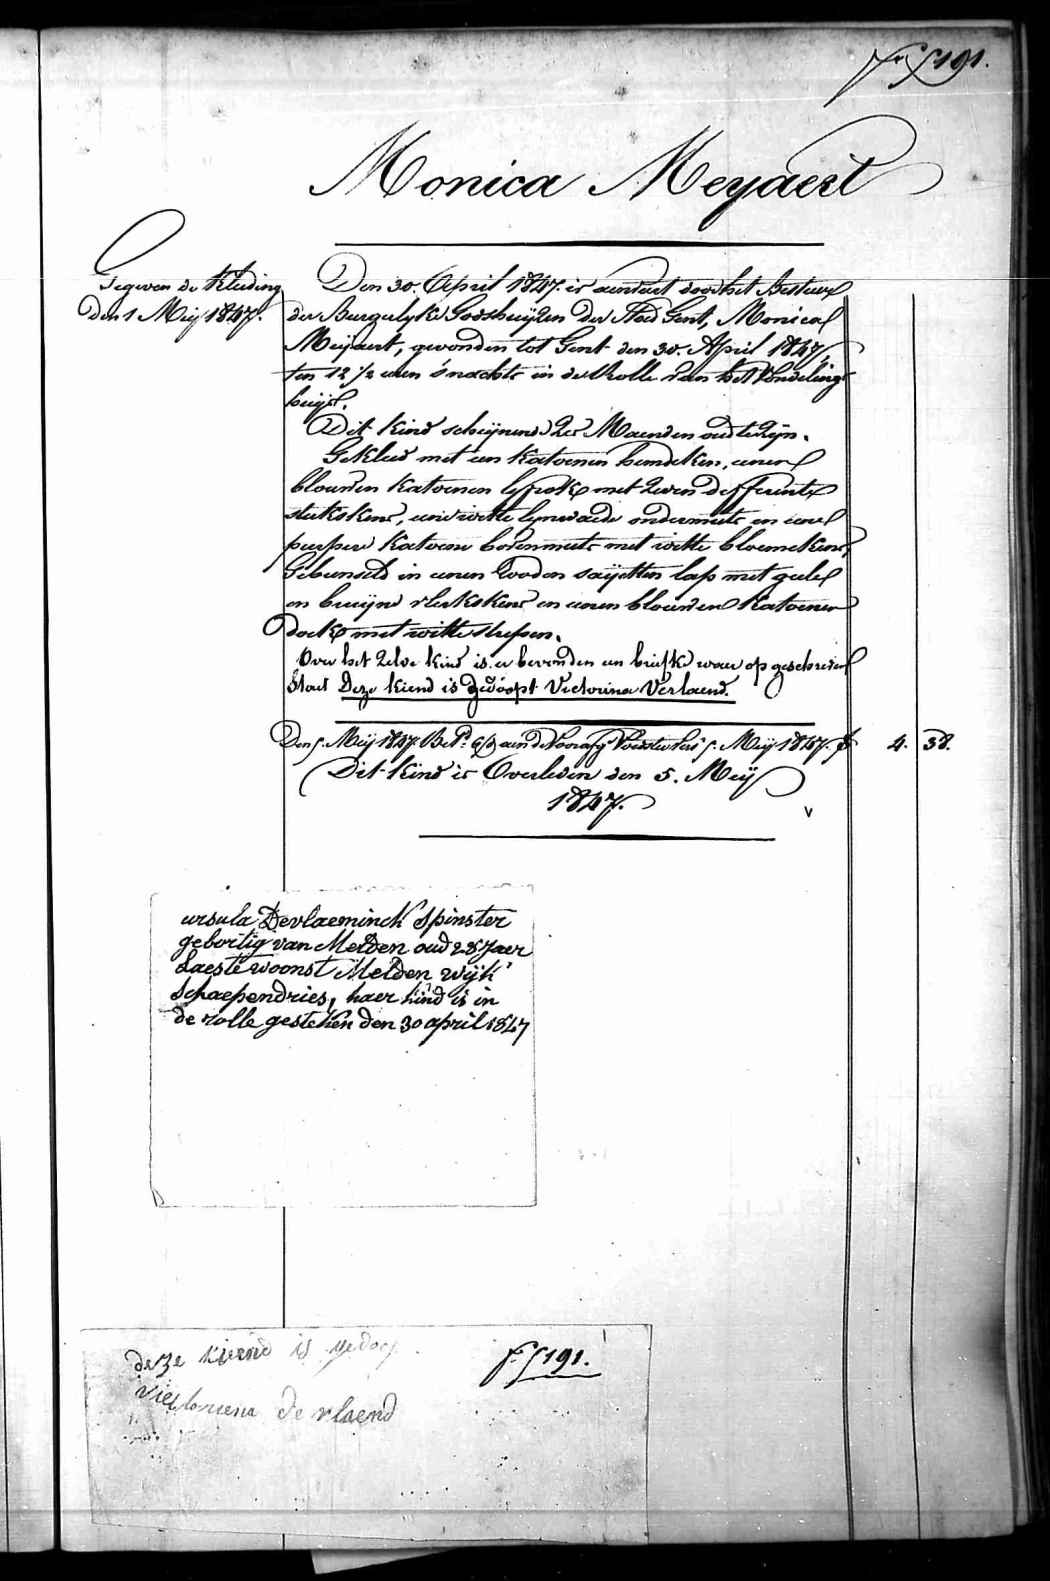 191.
Monica Meyaert
Gegeven de Kleding
den 1 Meij 1847.
Den 30. April 1847. is aenveert door het Bestuur
der Burgelyke Godshuijzen der Stad Gent, Monica
Meijaert, gevonden tot Gent den 30. April 1847,
ten 12 1/2 uren s'nachts in de Rolle van het Vondeling
huijs.
Dit kind scheijnende 2 Maenden oud te Zijn.
Gekleed met een katoenen hemdeken, eenen
blouwen katoenen met differente
stukskens, eene witte lynwaede ondermuts en eene
purpere katoene bovenmuts met witte bloemekens,
Gebunseld in eenen rooden saijetten lap met geele
en bruijne vlekskens en eenen blouwen katoenen
doek met witte strepen.
Over het Zelve kind is er bevonden een briefke waer op geschreven
Staet Deze kiend is gedoopt Victorina Verlaend.
Den 5 Meij 1847. Bet. aen de Voorafg 5. Meij 1847. 4. 38.
Dit kind is Overleden den 5. Meij
1847.
ursula Devlaeminck Spinster
gebortig van Melden oud 28 Jaer
Laeste woonst Melden wijk
Schaependries, haer kind is in
de rolle gesteken den 30 april 1847
deze kiend is gedoop
191.
victoriena de vlaend